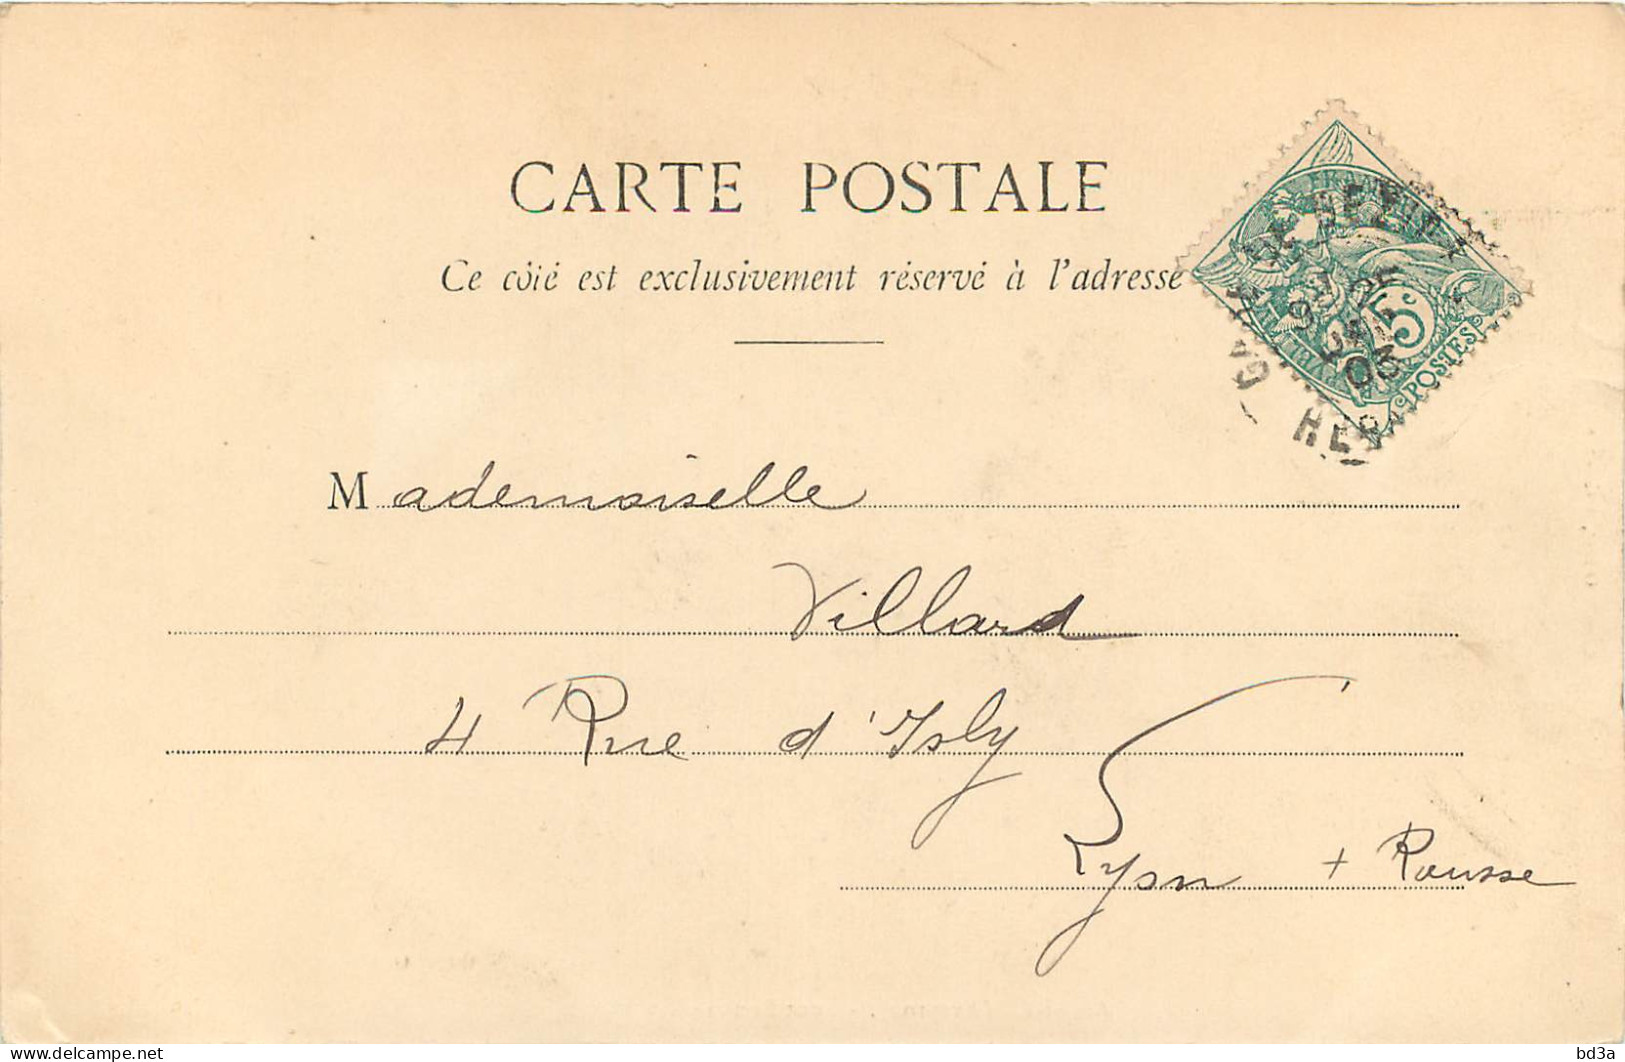 CARTE POSTALE
Ce côté est exclusivement réservé à l'adresse
5c
POSTES
GARE DE BEZIERS
03
HER
Mademoiselle
Villard
4 Rue d'Isly
Lyon + Rousse
delcampe.net
bd3a